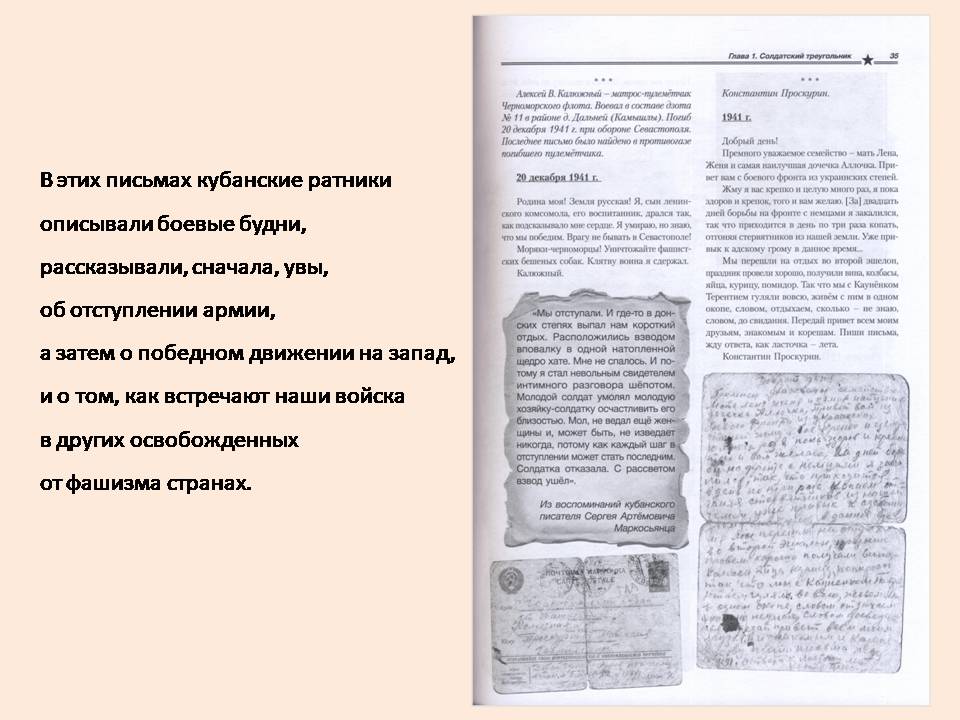 В этих письмах кубанские ратники
описывали боевые будни,
рассказывали, сначала, увы,
об отступлении армии,
а затем о победном движении на запад,
и о том, как встречают наши войска
в других освобожденных
от фашизма странах.
Глава 1. Солдатский треугольник 35
* * *
Алексей В. Калюжный – матрос-пулемётчик
Черноморского флота. Воевал в составе дзота
№ 11 в районе д. Дальней (Камышлы). Погиб
20 декабря 1941 г. при обороне Севастополя.
Последнее письмо было найдено в противогазе
погибшего пулемётчика.
20 декабря 1941 г.
Родина моя! Земля русская! Я, сын ленин-
ского комсомола, его воспитанник, дрался так,
как подсказывало мне сердце. Я умираю, но знаю,
что мы победим. Врагу не бывать в Севастополе!
Моряки-черноморцы! Уничтожайте фашист-
ских бешеных собак. Клятву воина я сдержал.
Калюжный.
«Мы отступали. И где-то в дон-
ских степях выпал нам короткий
отдых. Расположились взводом
вповалку в одной натопленной
щедро хате. Мне не спалось. И по-
тому я стал невольным свидетелем
интимного разговора шёпотом.
Молодой солдат умолял молодую
хозяйку-солдатку осчастливить его
близостью. Мол, не ведал ещё жен-
щины и, может быть, не изведает
никогда, потому как каждый шаг в
отступлении может стать последним.
Солдатка отказала. С рассветом
взвод ушёл».
Из воспоминаний кубанского
писателя Сергея Артёмовича
Маркосьянца
* * *
Константин Проскурин.
1941 г.
Добрый день!
Премного уважаемое семейство – мать Лена,
Женя и самая наилучшая дочечка Аллочка. При-
вет вам с боевого фронта из украинских степей.
Жму я вас крепко и целую много раз, я пока
здоров и крепок, того и вам желаю. [За] двадцать
дней борьбы на фронте с немцами я закалился,
так что приходится в день по три раза копать,
отгоняя стервятников из нашей земли. Уже при-
вык к адскому грому в данное время...
Мы перешли на отдых во второй эшелон,
праздник провели хорошо, получили вина, колбасы,
яйца, курицу, помидор. Так что мы с Каунёнком
Терентием гуляли вовсю, живём с ним в одном
окопе, словом, отдыхаем, сколько – не знаю,
словом, до свидания. Передай привет всем моим
друзьям, знакомым и корешам. Пиши письма,
жду ответа, как ласточка – лета.
Константин Проскурин.